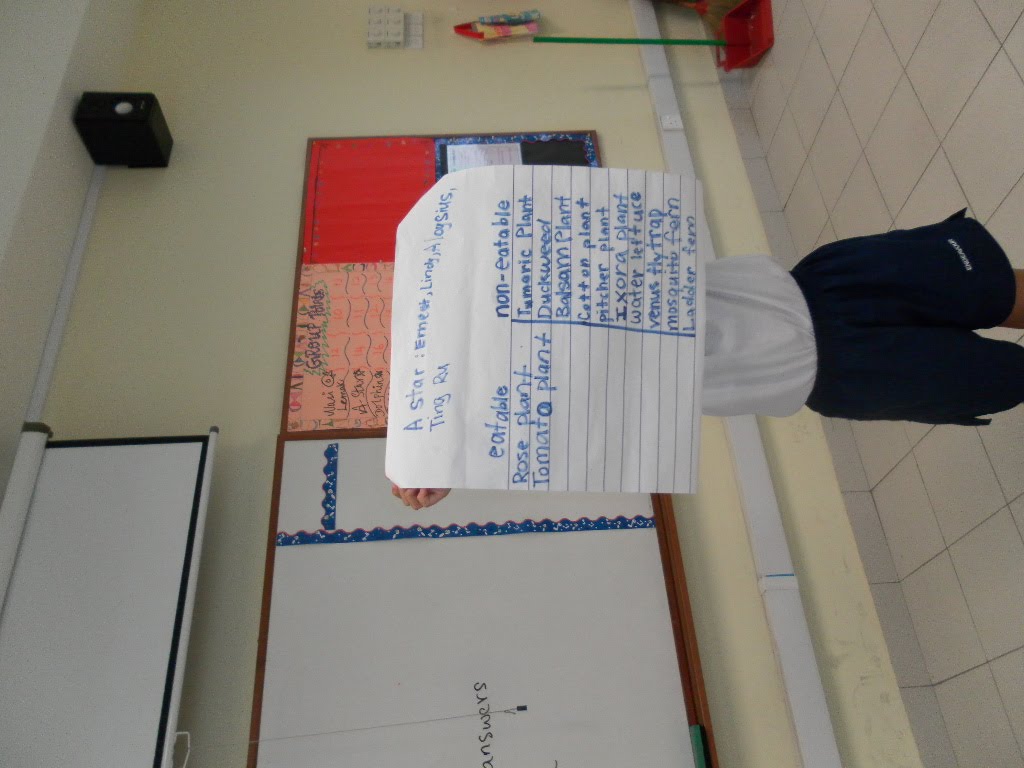 A star : Ernest, Lindy, Aloysius,
Ting Ru
eatable non-eatable
Rose plant Tumeric Plant
Tomato plant Duckweed
Balsam Plant
Cotton plant
pitcher plant
Ixora plant
water lettuce
venus flytrap
mosquito fern
Ladder fern
GROUP
A Star
answers